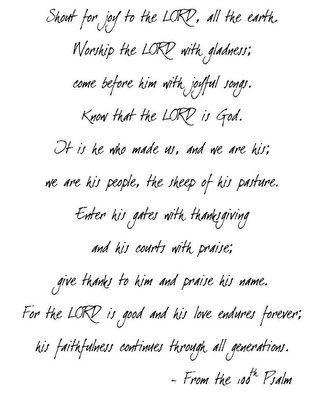 Shout for joy to the LORD, all the earth.
Worship the LORD with gladness;
come before him with joyful songs.
Know that the LORD is God.
It is he who made us, and we are his;
we are his people, the sheep of his pasture.
Enter his gates with thanksgiving
and his courts with praise;
give thanks to him and praise his name.
For the LORD is good and his love endures forever;
his faithfulness continues through all generations.
- From the 100th Psalm